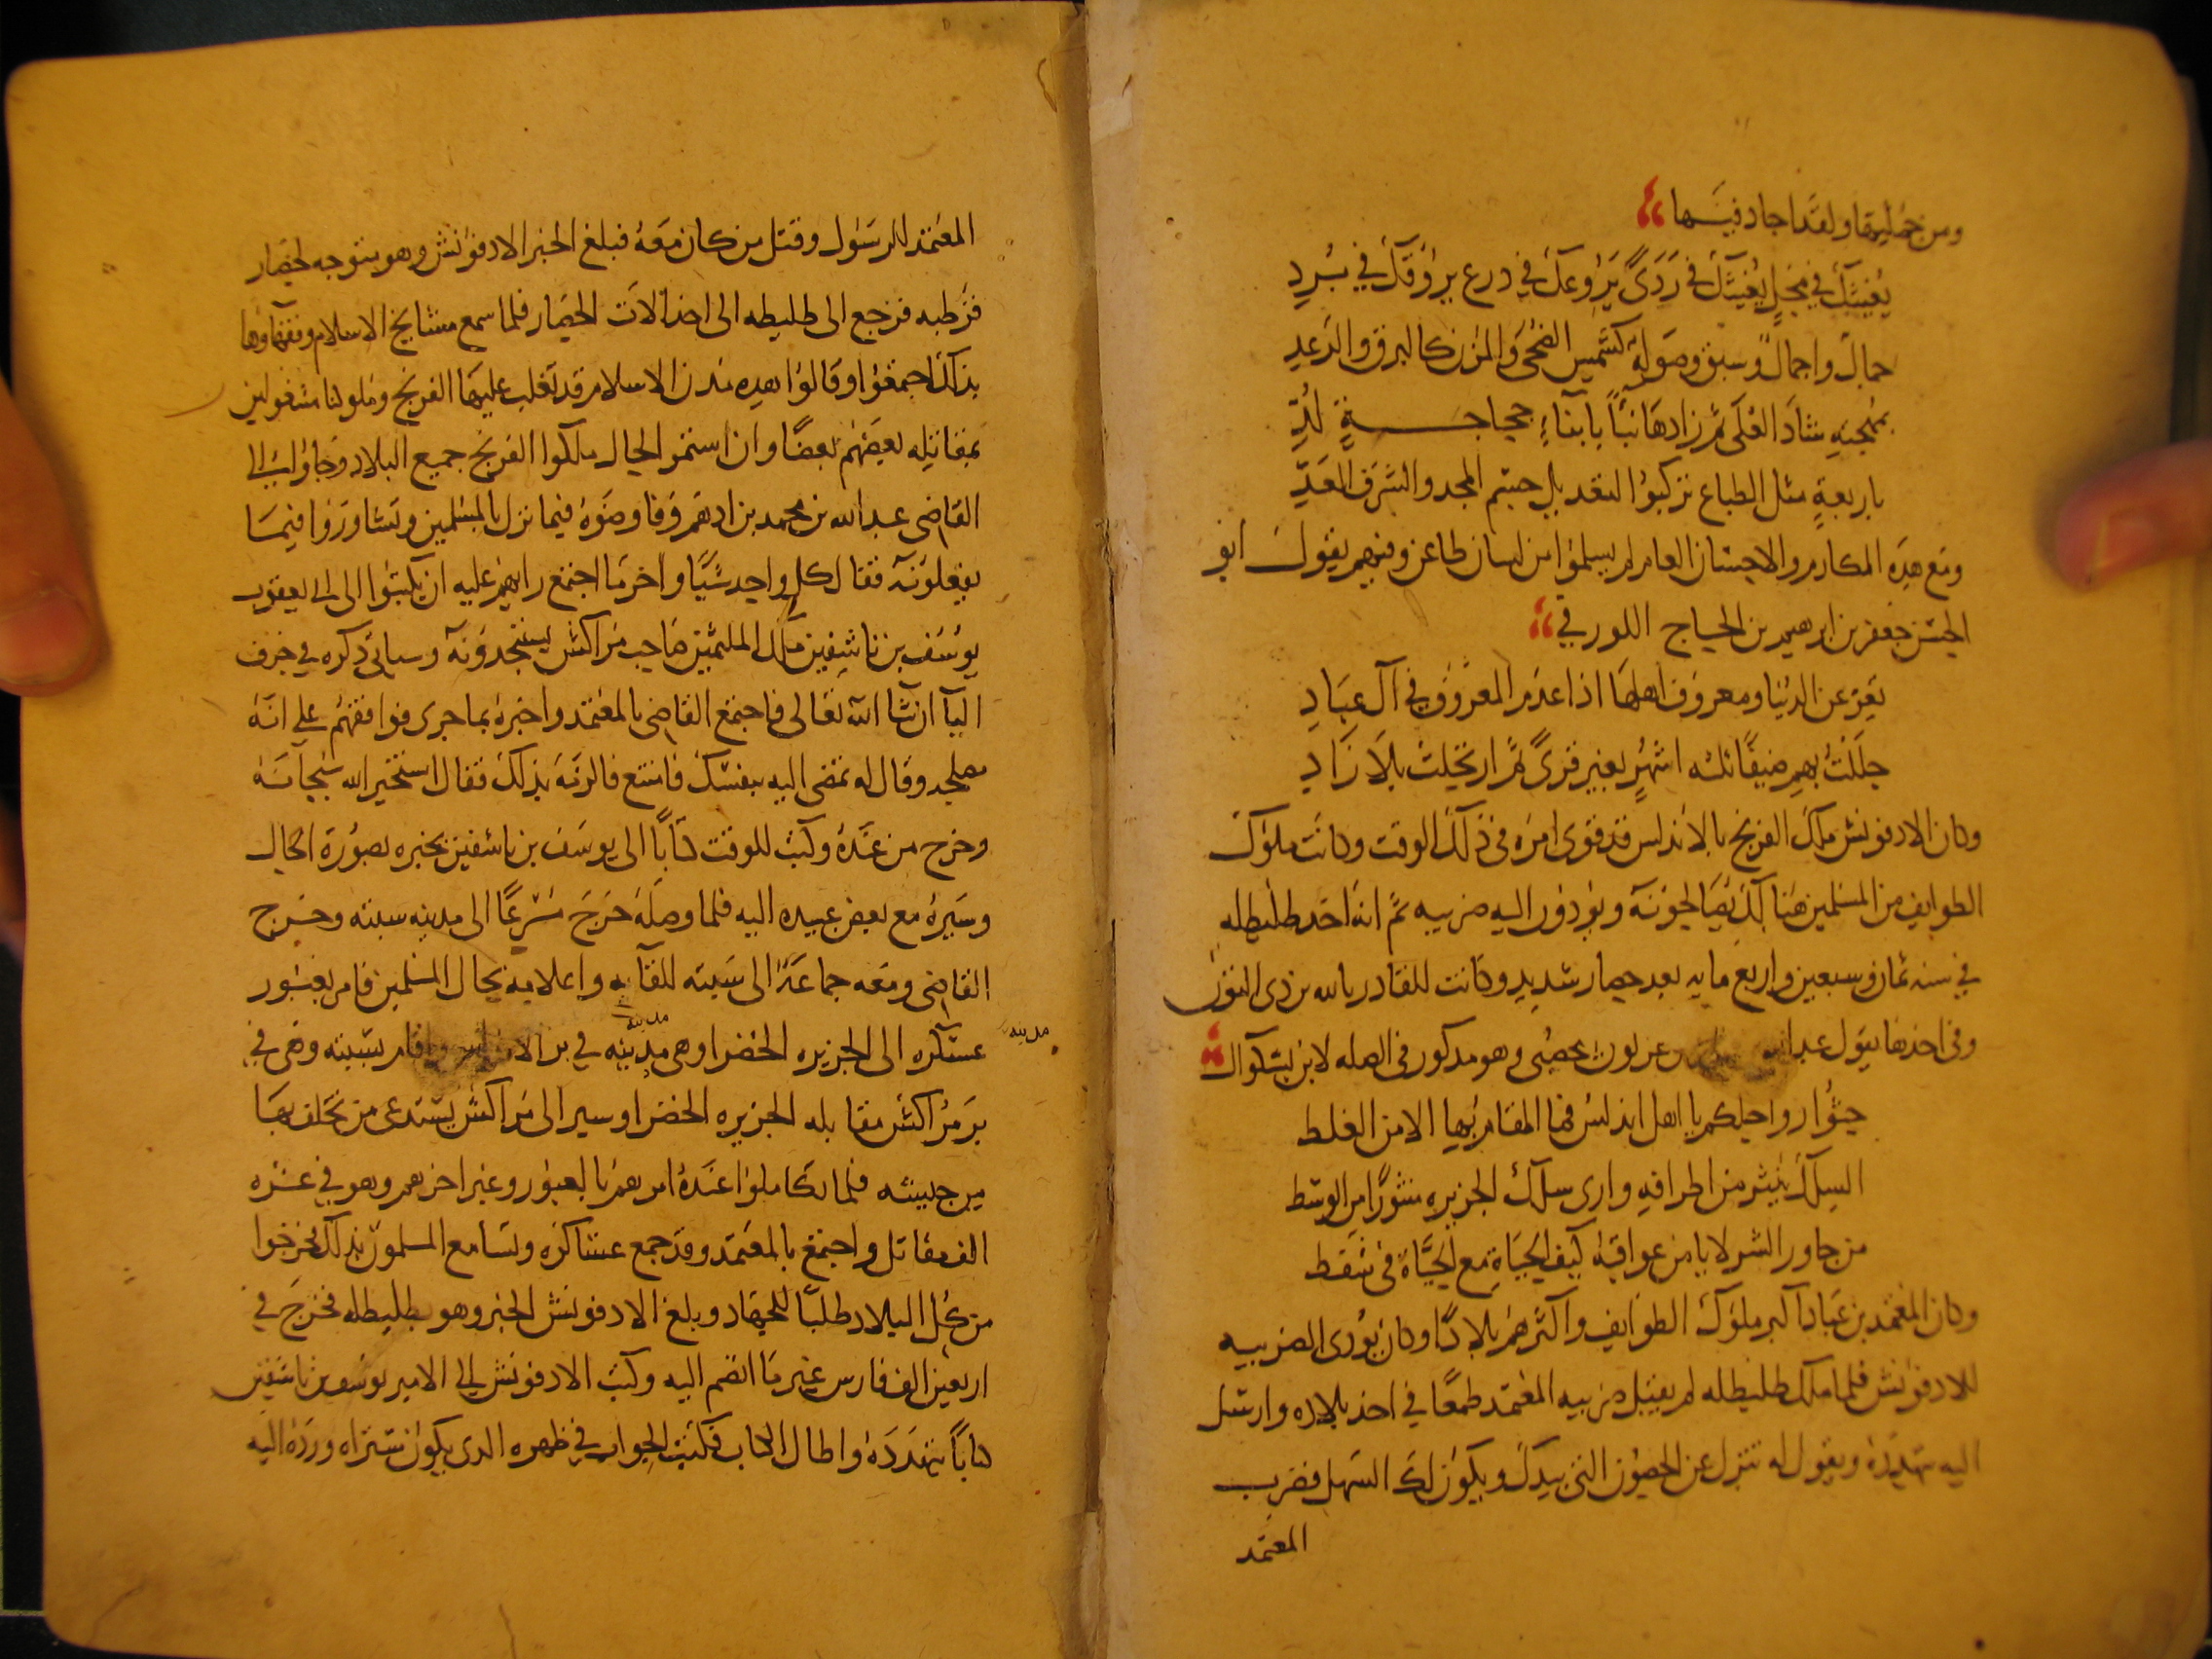 ومن جملتها ولقد اجاد فيها
يُغيثك في مَحْلٍ يُغيثك في رَدًى يَروعك في درع يروقك في بُردِ
جمال واجمال وسبق وصولة كشمس الضحى والمزن كالبرق والرعدِ
بمهجته شاد العُلى ثم زادها بناً بابناءٍ جحاجــــــةٍ لُدِّ
باربعةٍ مثل الطباع تركبوا لتعديل جسم المجد والشرف العَدِّ
ومع هذه المكارم والاحسان العام لم يسلموا من لسان طاعن وفيهم يقول ابو
الحسن جعفر بن ابرهيم بن الحاج اللورقي
تعز عن الدنيا ومعروف اهلها اذا عدم المعروف في آل عبادِ
حللت بهم ضيفا ثلثه اشهرٍ بغير قرًى ثم ارتحلت بلا زَادِ
وكان الادفونش ملك الفرنج بالاندلس قد قوى امره في ذلك الوقت وكانت ملوك
الطوايف من المسلمين هنالك يصالحونه ويودون اليه ضريبه ثم انه اخذ طليطله
في سنه ثمان وسبعين واربع مايه بعد حصار شديد وكانت للقادر بالله بن ذى النون
وفى اخذها يقول عبد الله وهو مذكور فى الصله لابن بشكوال
حثوا رواحلكم يا اهل اندلس فما المقام بها الا من الغلط
السلك ينثر من اطرافه وارى سلك الجزيره منثورًا من الوسط
من جاور الشر لا يامن عواقبه كيف الحياة مع الحيّات فى سَفط
وكان المعتمد بن عباد اكبر ملوك الطوايف واكثرهم بلادًا وكان يؤدى الضريبه
للادفونش فلما ملك طليطله لم يقبل ضريبه المعتمد طمعًا في اخذ بلاده وارسل
اليه يتهدده ويقول له تنزل عن الحصون التى بيدك ويكون لك السهل فضرب
المعتمد
المعتمد الرسول وقتل من كان معه فبلغ الخبر الادفونش وهو متوجه لحصار
قرطبه فرجع الى طليطه الى اخذ الات الحصار فلما سمع مشايخ الاسلام وفقهاوها
بذلك اجتمعوا وقالوا هذه مدن الاسلام قد تغلب عليها الفرنج وملوكنا مشغولين
بمقاتله بعضهم بعضًا وان استمر الحال ملكوا الفرنج جميع البلاد وجاوا الى
القاضى عبد الله بن محمد بن ادهم وفاوضوه فيما نزل بالمسلمين وتشاوروا فيما
يفعلونه فقال كل واحد شيًا واخر ما اجتمع رايهم عليه ان يكتبوا الى الى يعقوب
يوسف بن تاشفين ملك الملثمين صاحب مراكش يستنجدونه وسياتى ذكره في حرف
اليا ان شا الله تعالى فاجتمع القاضى بالمعتمد واخبره بما جرى فوافقهم على انه
مصلحه وقال له تمضى اليه بنفسك فامتنع فالزمه بذلك فقال استخير الله سبحانه
وخرج من عنده وكتب للوقت كتابًا الى يوسف بن تاشفين يخبره بصورة الحال
وسيره مع بعض عبيده اليه فلما وصله خرج مسرعًا الى مدينه سبته وخرج
القاضى ومعه جماعة الى سبته للقآيه واعلامه بحال المسلمين فامر بعبور
مدينه
عسكره الى الجزيره الخضرا وهى مدينه في بر الاندلس واقام بسبته وهى في
مدينه
بر مراكش مقابله الجزيره الخضرا وسير الى مراكش يستدعى من تخلف بها
من جيشه فلما تكاملوا عنده امرهم بالعبور وعبر اخرهم وهو في عشره
الف مقاتل واجتمع بالمعتمد وقد جمع عساكره وتسامع المسلمون بذلك فخرجوا
من كل البلاد طلبًا للجهاد وبلغ الادفونش الخبر وهو بطليطله فخرج في
اربعين الف فارس غير ما انضم اليه وكتب الادفونش الى الامير يوسف بن تاشفين
كتابًا يتهدده واطال الكتاب فكتب الجواب في ظهره الذى يكون ستراه ورده اليه